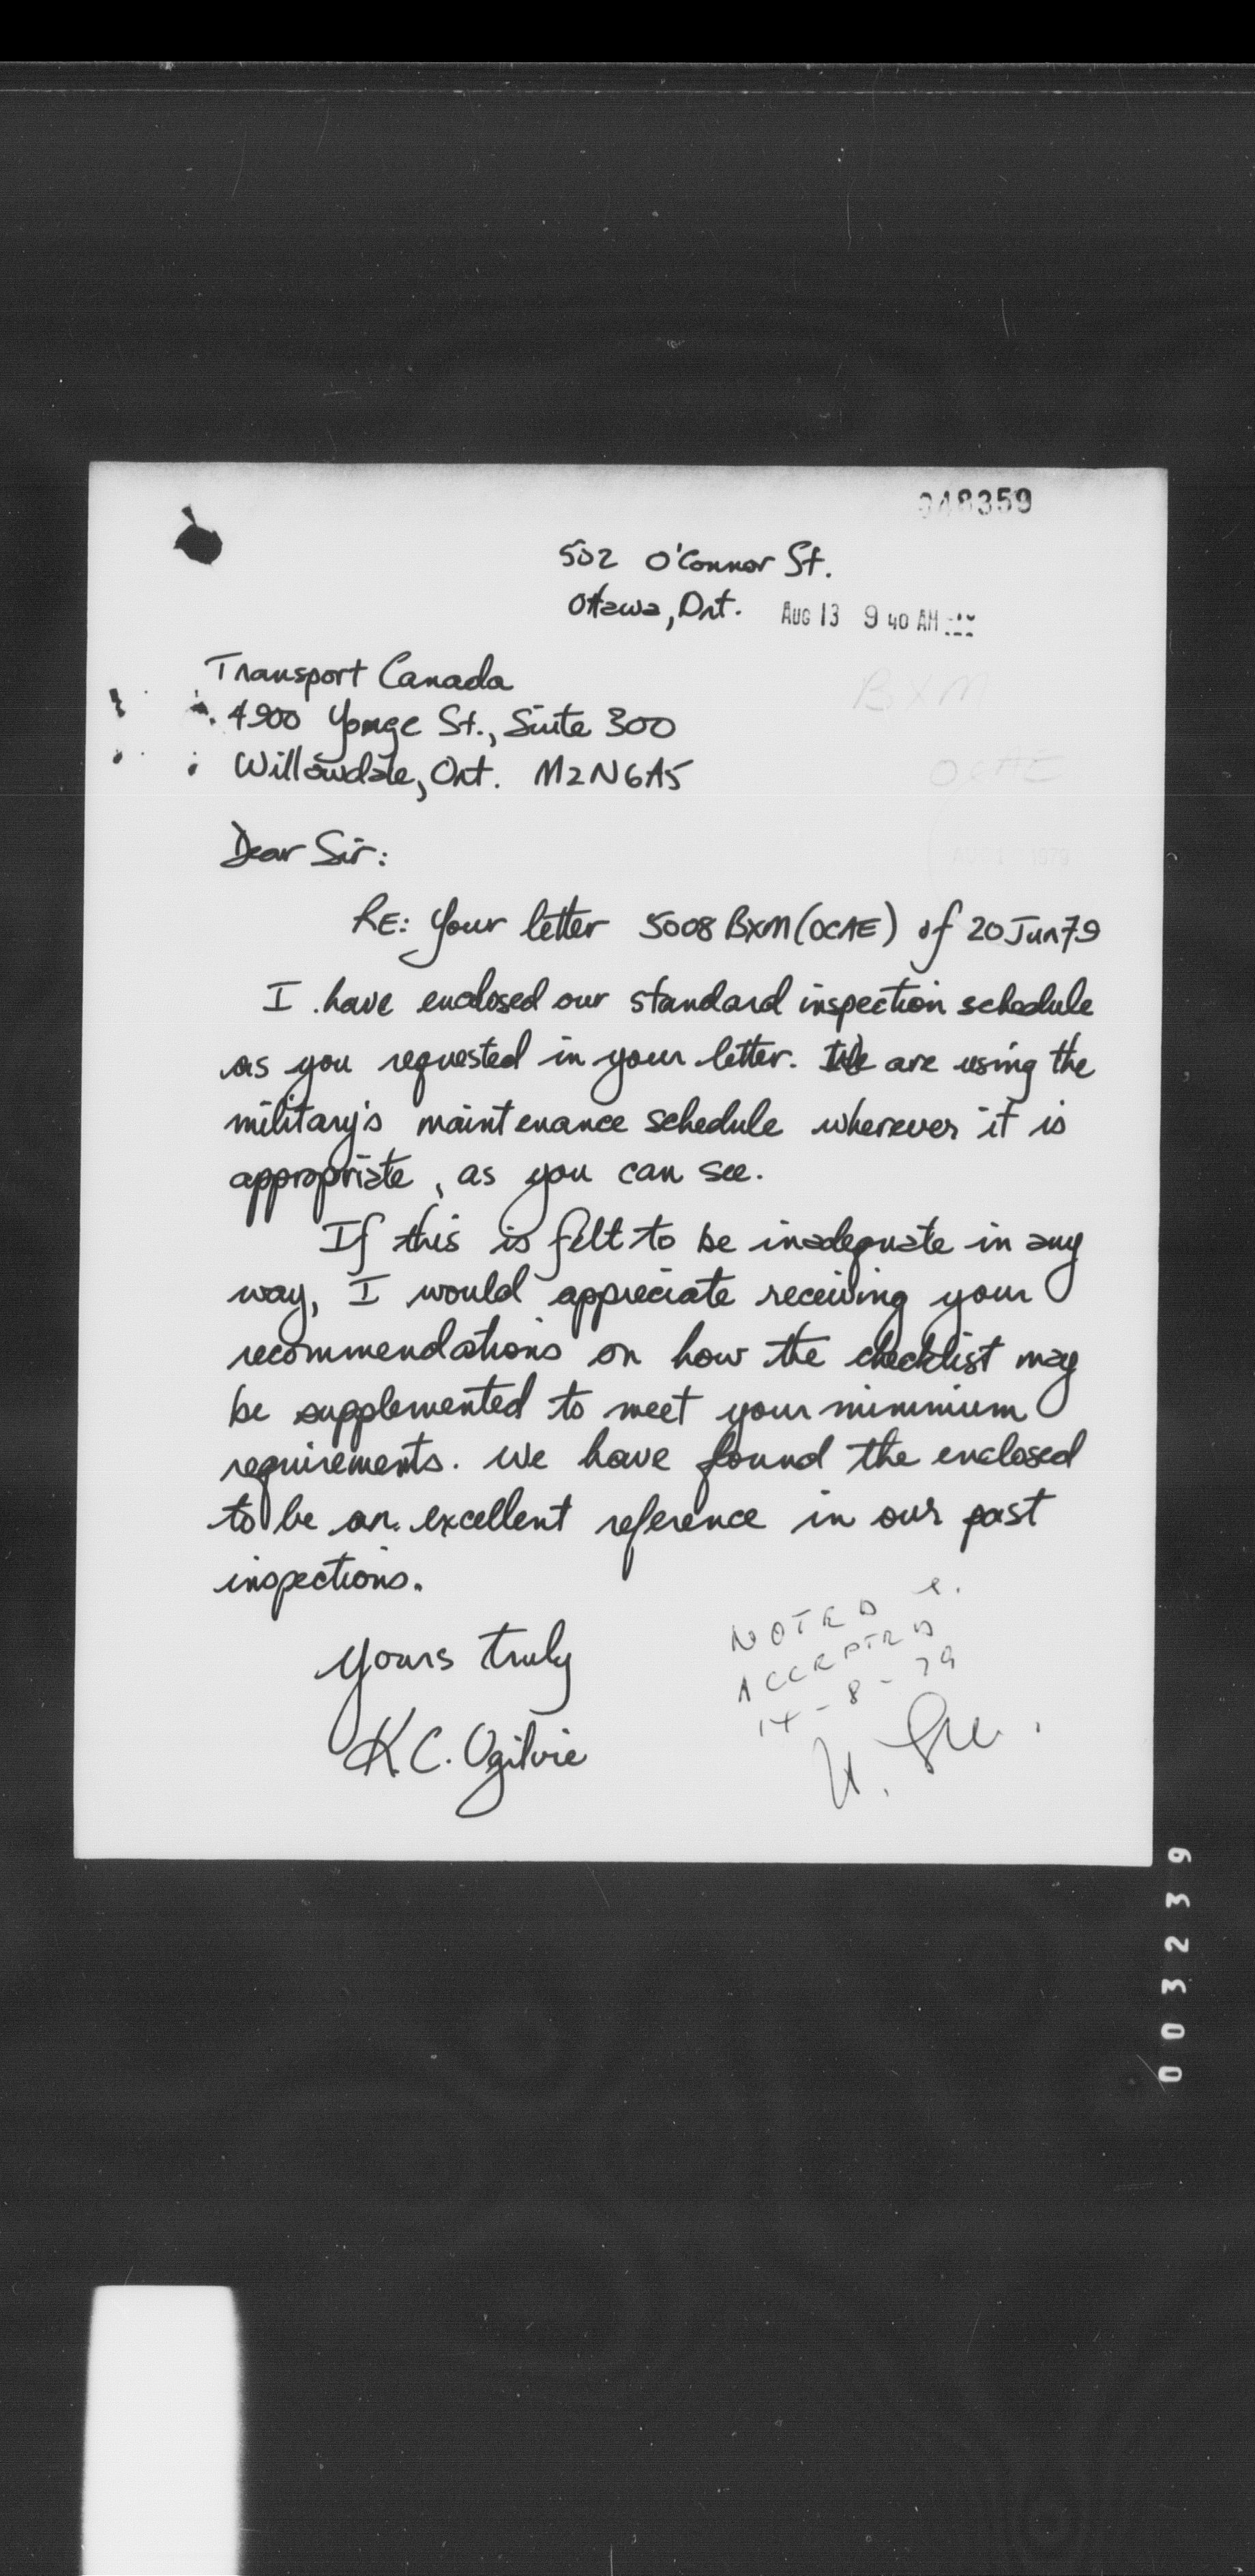 948359
502 O'Connor St.
Ottawa, Ont. AUG 13 9 40 AM
Transport Canada
4900 Yonge St., Suite 300
Willowdale, Ont. M2N6A5
BXM
OCAE
1979
Dear Sir:
RE: Your letter 5008 BXM (OCAE) of 20 Jun 79
I have enclosed our standard inspection schedule
as you requested in your letter. We are using the
military's maintenance schedule wherever it is
appropriate, as you can see.
If this is felt to be inadequate in any
way, I would appreciate receiving your
recommendations on how the checklist may
be supplemented to meet your minimium
requirements. We have found the enclosed
to be an excellent reference in our past
inspections.
Yours truly
K.C. Ogilvie
NOTED &
ACCEPTED
14-8-79
003239